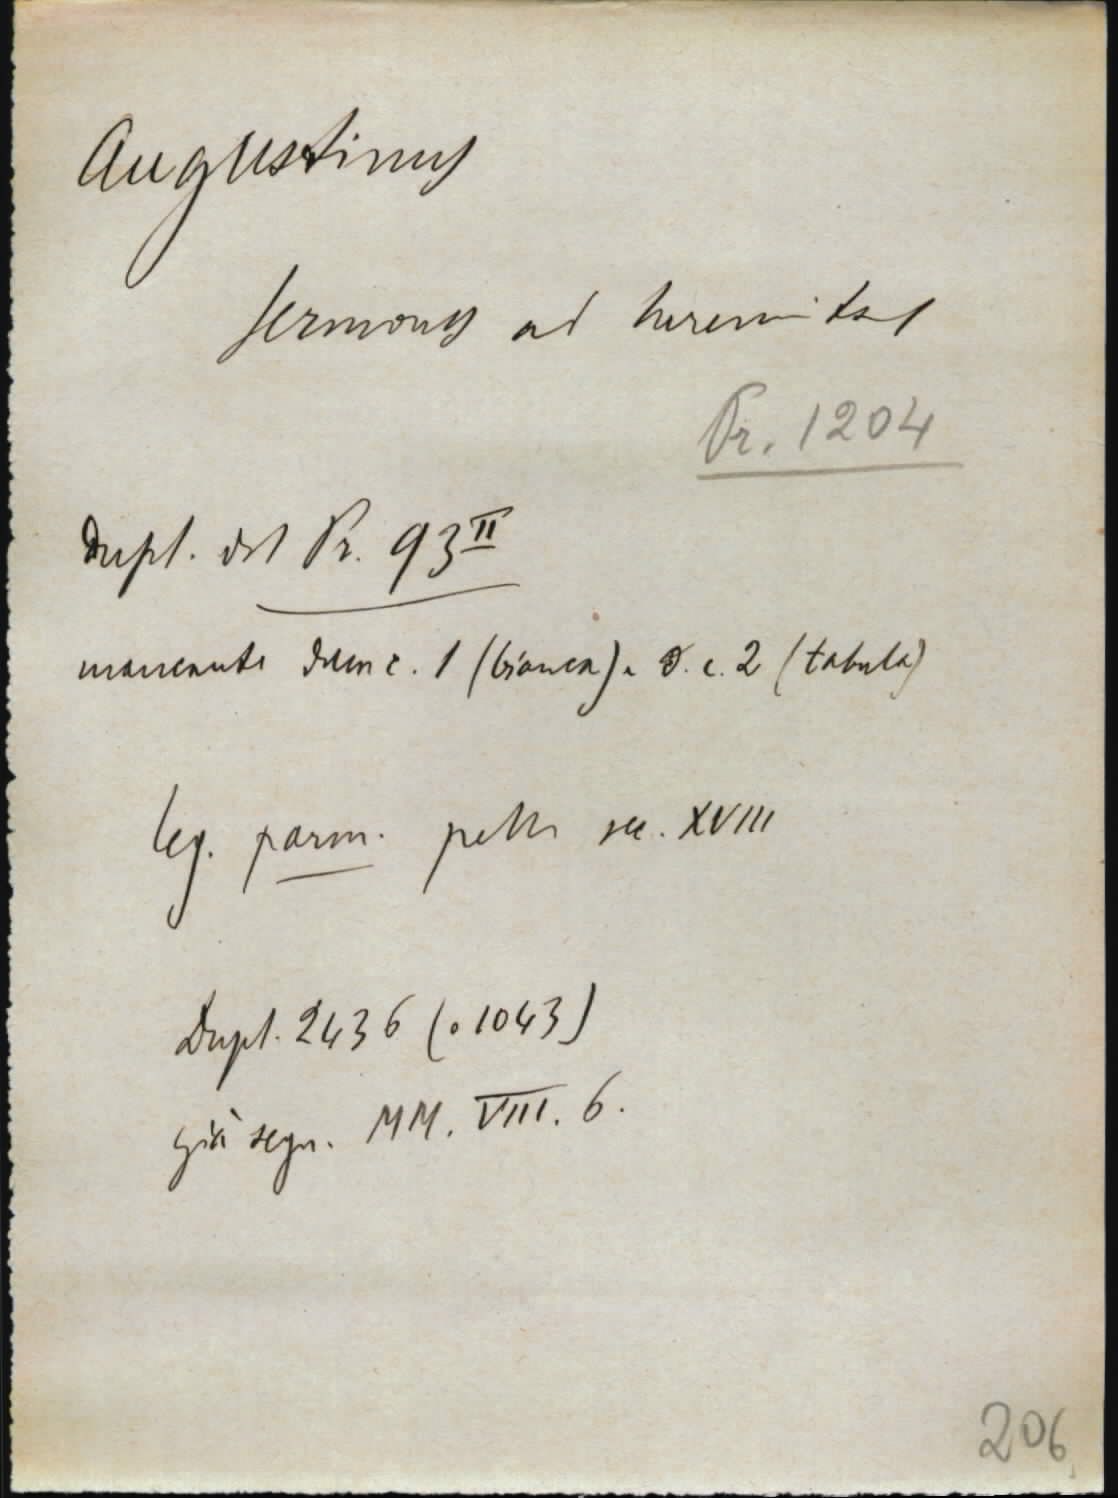 Augustinus
Sermones ad heremitas
Pr. 1204
Dupl. del Pr. 93 II
mancante della c. 1 (bianca) e d. c. 2 (tabula)
leg. parm. pelle sec. XVIII
Dupl. 2436 (. 1043)
già segn. MM. VIII. 6.
206